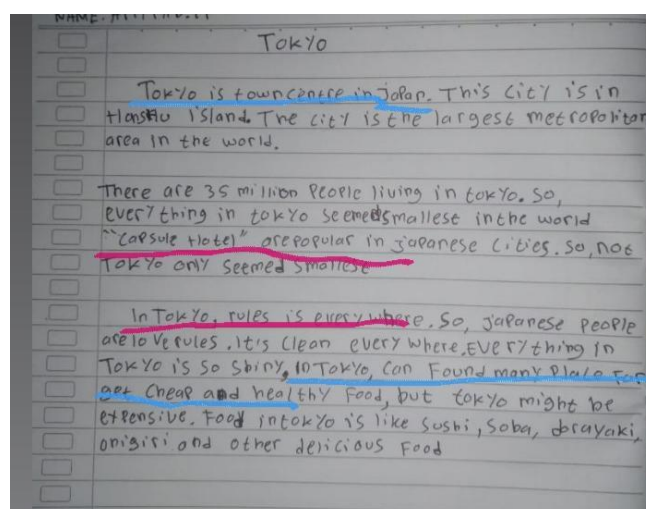 NAME:
Tokyo
Tokyo is town centre in Japan. This city is in
Hanshu island. The city is the largest metropolitan
area in the world.
There are 35 million people living in tokyo. So,
everything in tokyo seemed smallest in the world
"Capsule Hotel" are popular in japanese cities. So, not
Tokyo only seemed smallest
In Tokyo, rules is everywhere. So, japanese people
are love rules. It's clean everywhere. Everything in
Tokyo is so shiny, in Tokyo, can found many place for
get cheap and healthy food, but tokyo might be
expensive. Food in tokyo is like sushi, soba, dorayaki,
onigiri and other delicious food